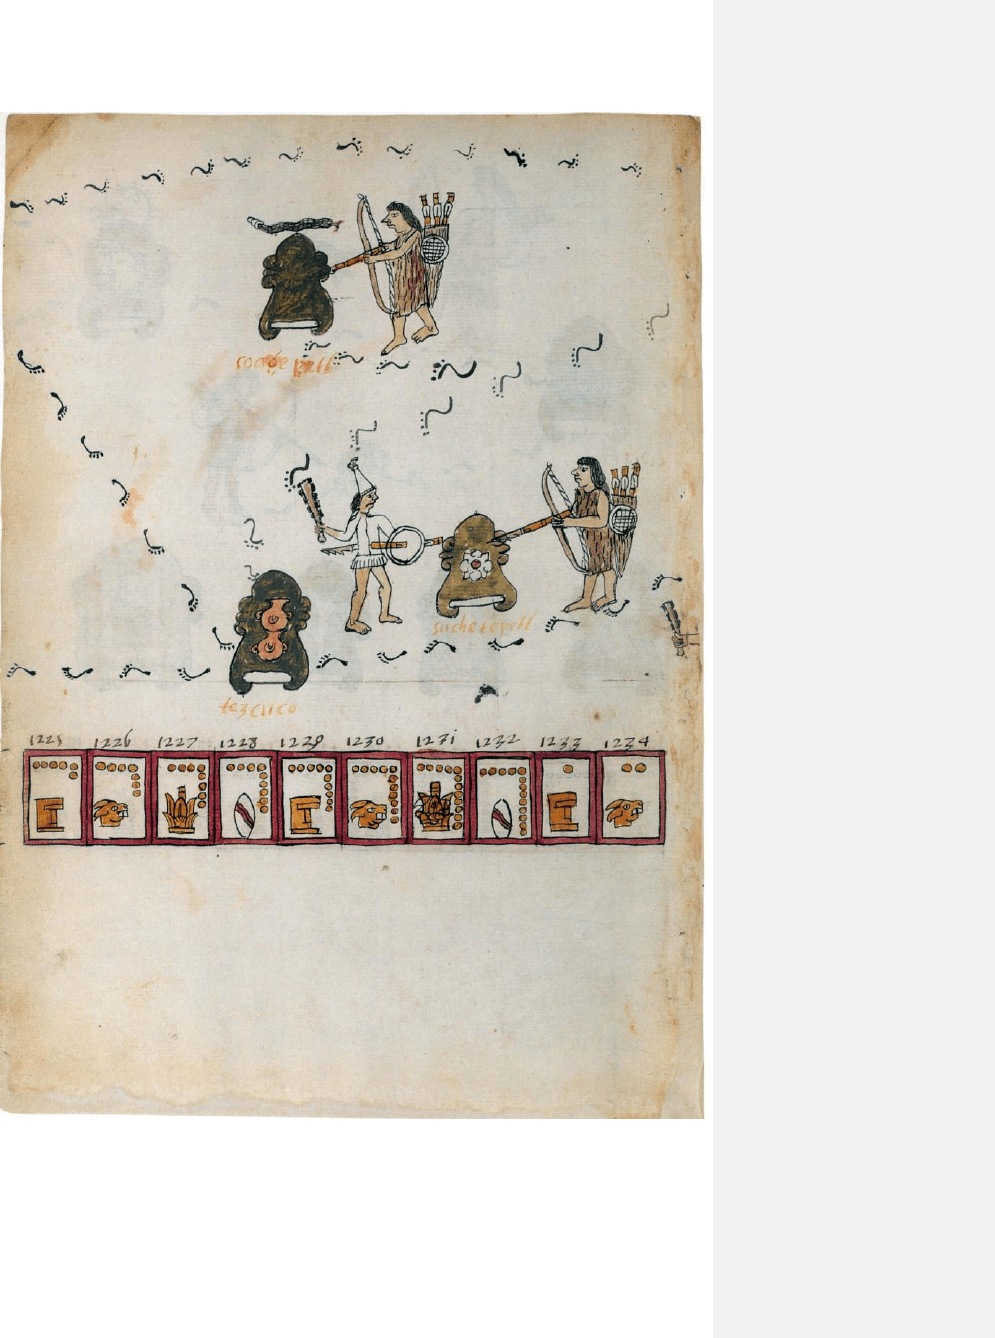 coatepetl
suchetepetl
tezcuco
1225 1226 1227 1228 1229 1230 1231 1232 1233 1234